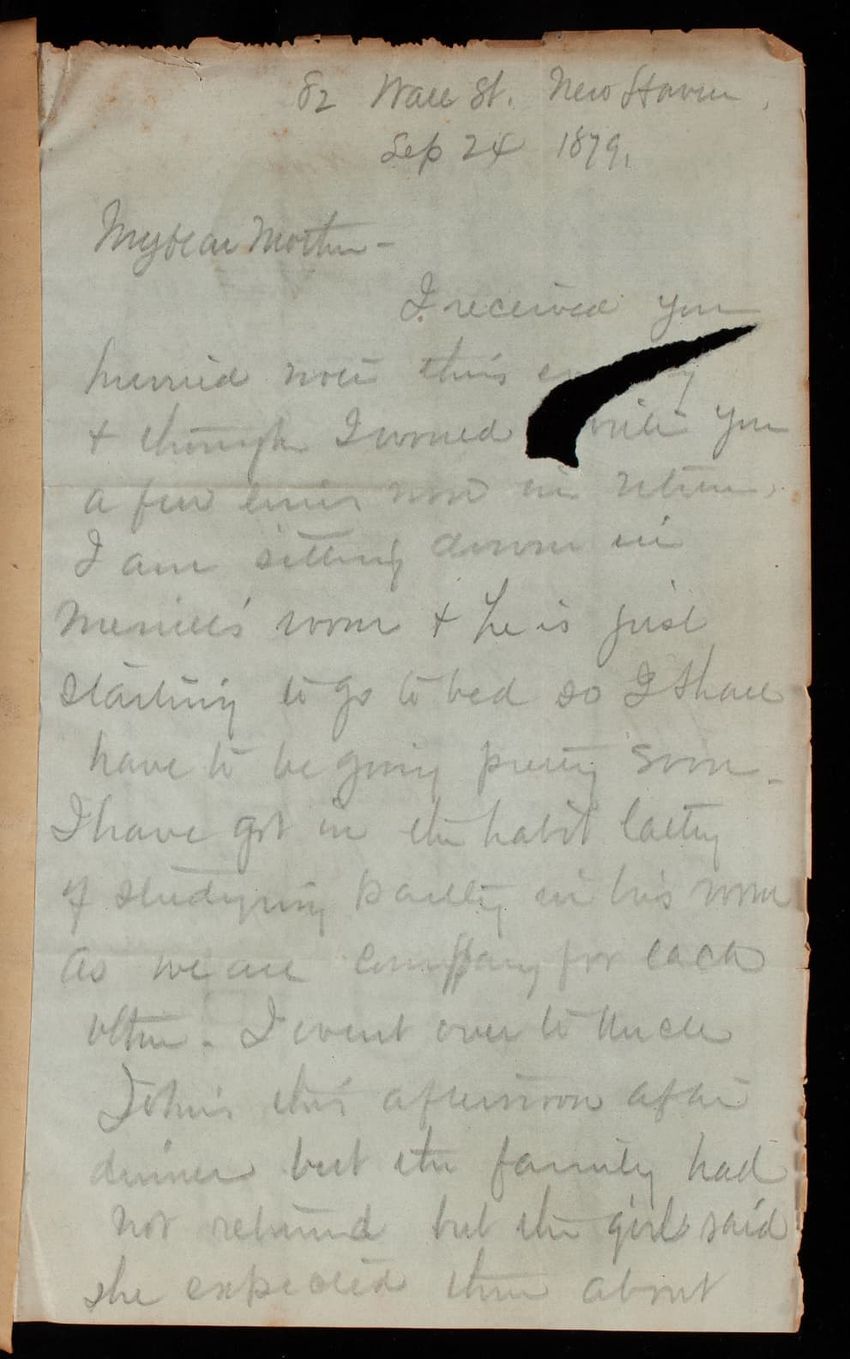 82 Wall St. New Haven,
Sep 24 1879.
My dear Mother -
I received your
hurried note this
& though I would write you
a few lines now in return.
I am sitting down in
Merrill's room & he is just
starting to go to bed so I shall
have to be going pretty soon.
I have got in the habit lately
of studying partly in his room
as we are company for each
other. I went over to Uncle
John's this afternoon after
dinner but the family had
not returned but the girl said
she expected them about